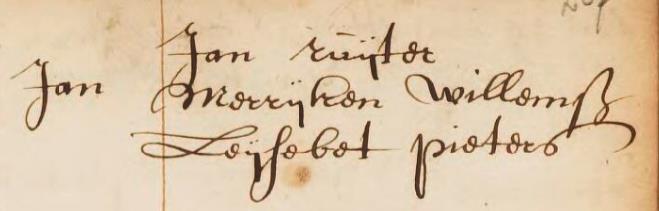 Jan ruijter
Jan Merrijken willemsz
Leijsebet pieters